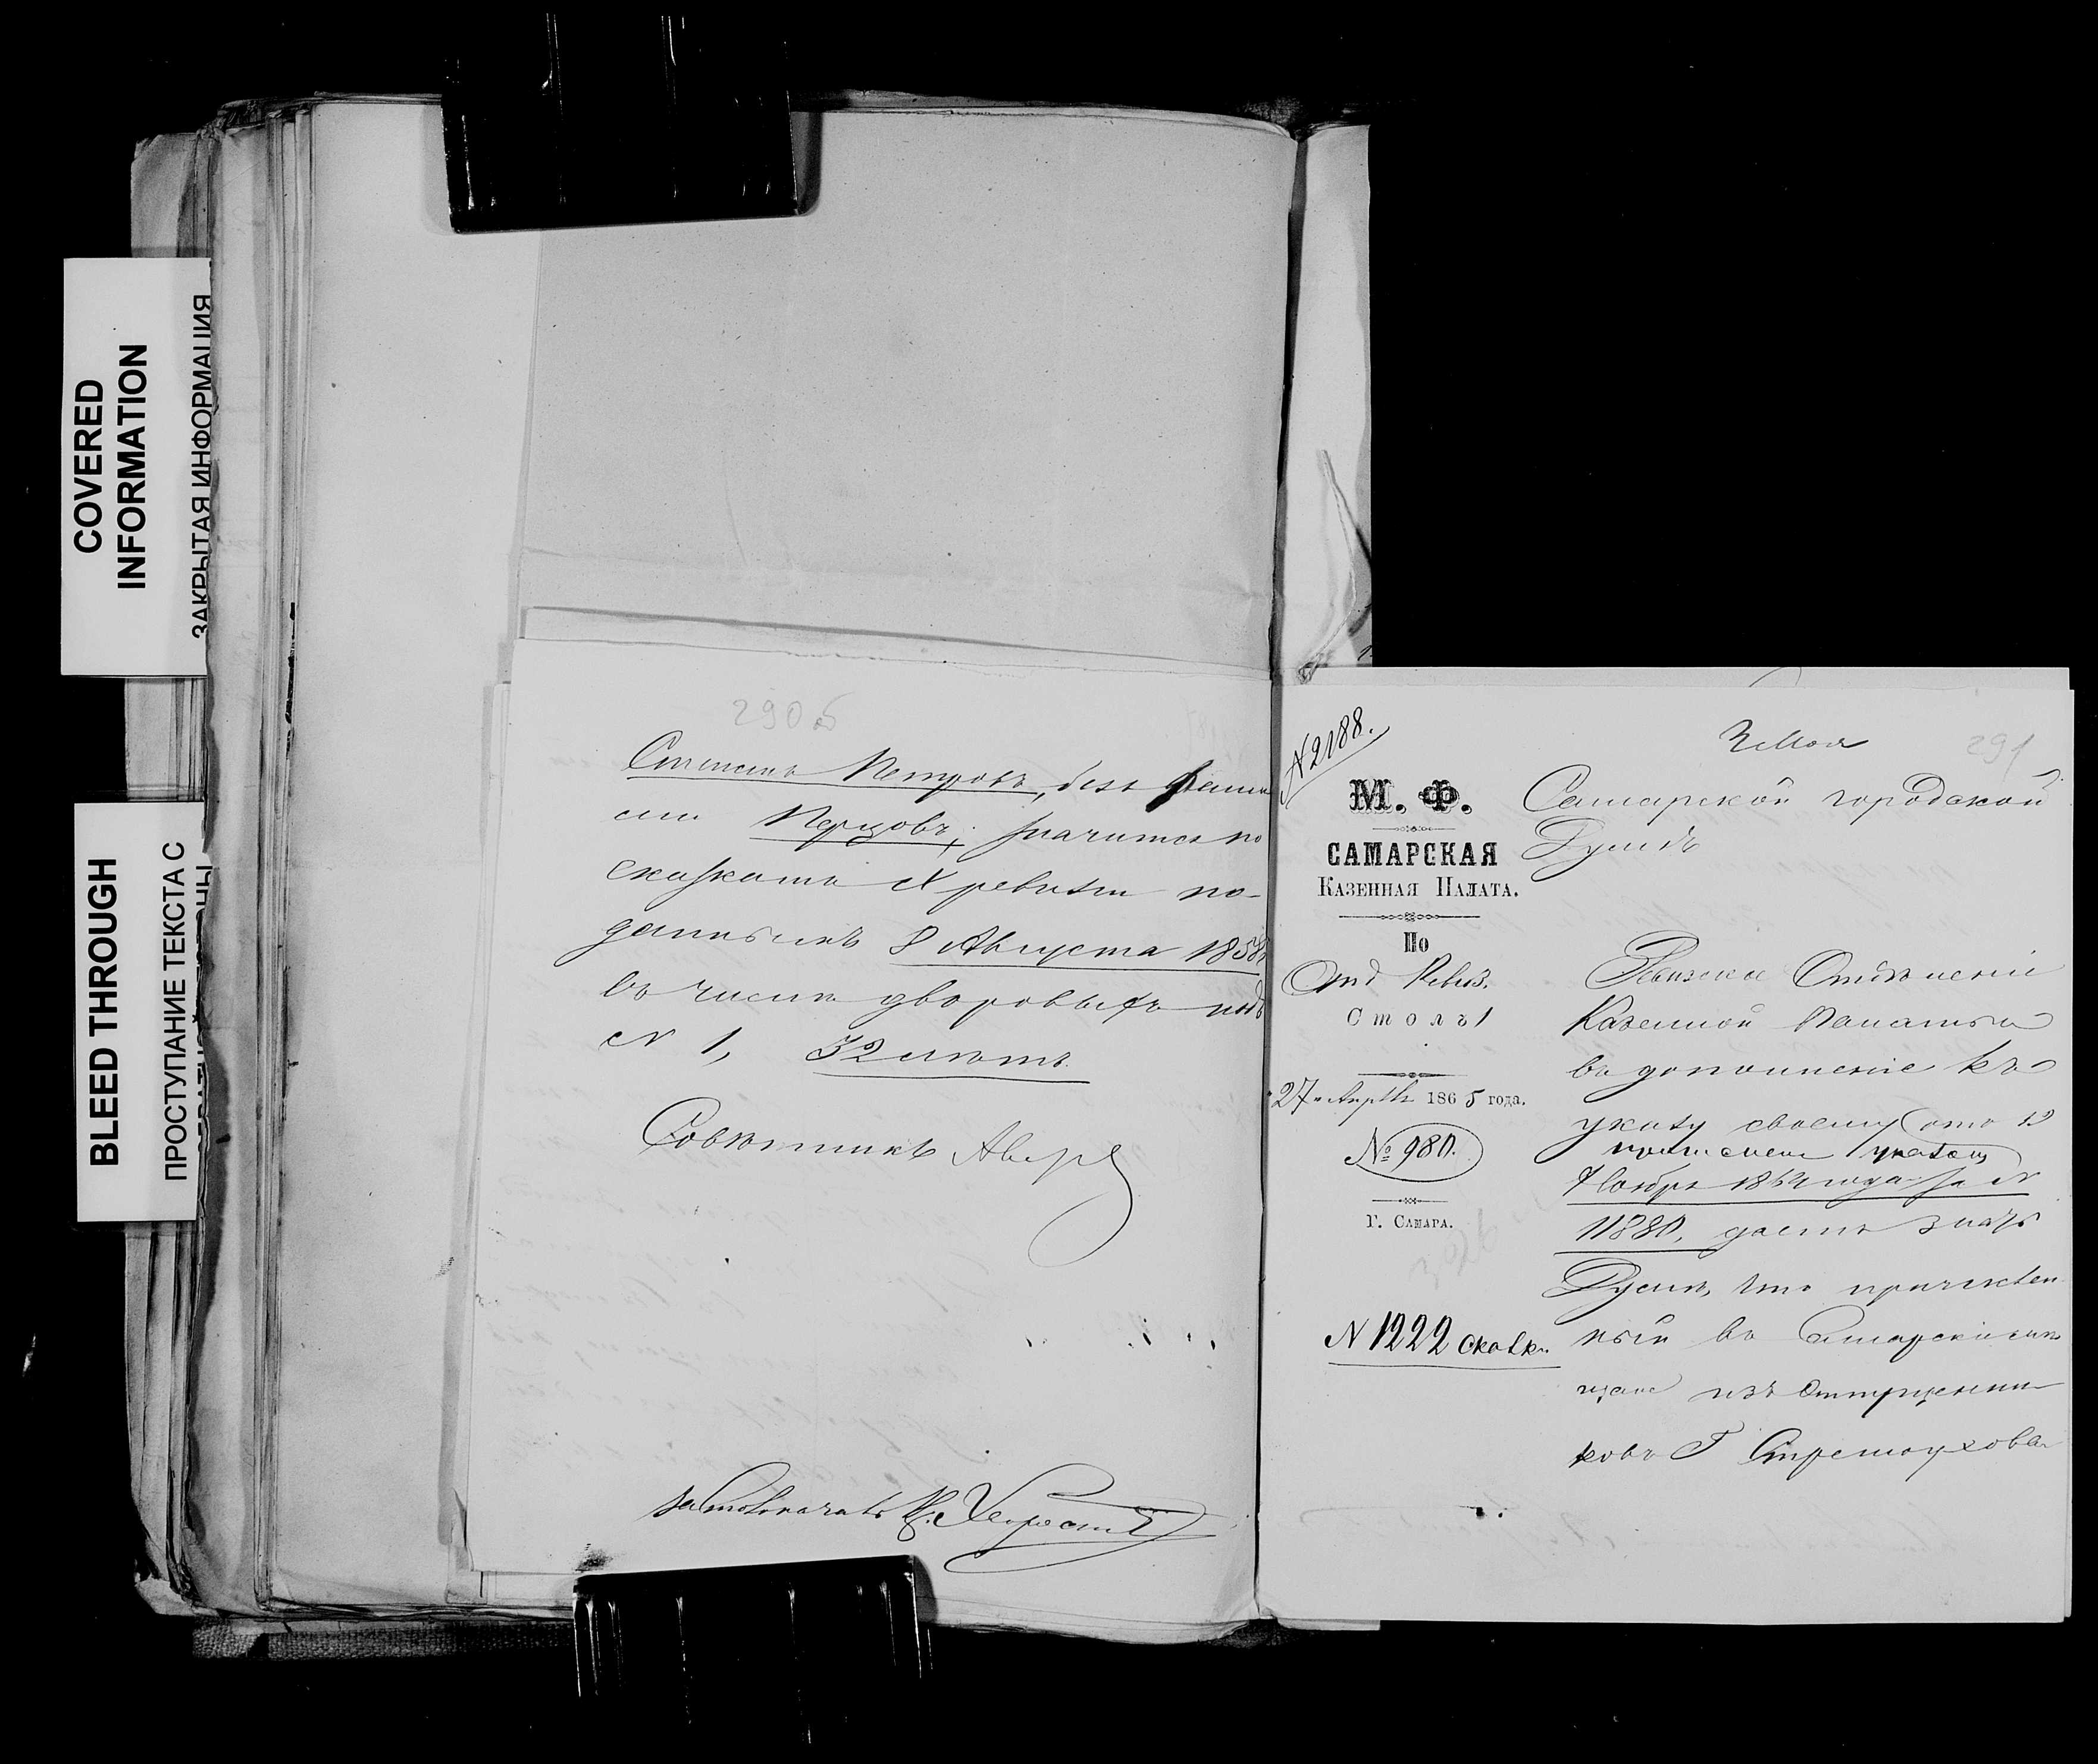 COVERED
INFORMATION
ЗАКРЫТАЯ ИНФОРМАЦИЯ
BLEED THROUGH
ПРОСТУПАНИЕ ТЕКСТА С
290 об
Степанъ Петровъ, безъ фами
ліи Перцовъ, значится по
сказкамъ X ревизіи по-
даннымъ 8 Августа 1858 г.
въ числѣ дворовыхъ подъ
N 1, 32 лѣтъ.
Совѣтникъ
за Столоначаль
N 2188.
М. Ф.
САМАРСКАЯ
КАЗЕННАЯ ПАЛАТА.
По
Отд Ревиз.
Столъ 1
27 Апрѣля 1865 года.
№ 980.
Г. САМАРА.
N 1222 сказк.
3 Мая
291
Самарской городской
Думѣ
Ревизское Отдѣленіе
Казенной Палаты
въ дополненіе къ
указу своему отъ 12
Ноября 1864 года за N
11880, даетъ знать
Думѣ, что причислен
ный въ Самарскіе мѣ
щане изъ отпущенни
ковъ Г Стремоухова